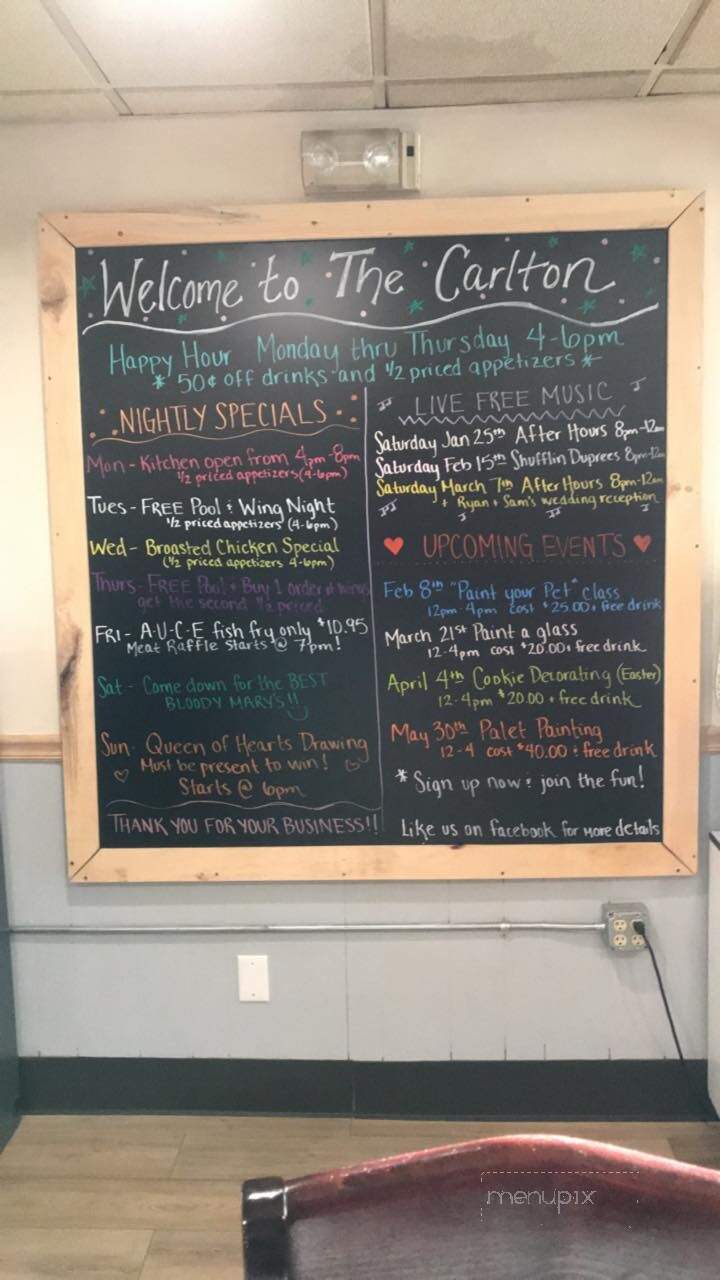 Welcome to The Carlton
Happy Hour Monday thru Thursday 4-6pm
* 50¢ off drinks and 1/2 priced appetizers *
NIGHTLY SPECIALS
Mon - Kitchen open from 4pm-8pm
1/2 priced appetizers (4-6pm)
Tues - FREE Pool + Wing Night
1/2 priced appetizers (4-6pm)
Wed - Broasted Chicken Special
(1/2 priced appetizers 4-6pm)
Thurs - FREE Pool + Buy 1 order of
get the second 1/2 priced
FRI - A.U.C.E fish fry only $10.95
Meat Raffle starts @ 7pm!
Sat - Come down for the BEST
BLOODY MARY'S!!
Sun - Queen of Hearts Drawing
Must be present to win!
Starts @ 6pm
THANK YOU FOR YOUR BUSINESS!!
LIVE FREE MUSIC
Saturday Jan 25th After Hours 8pm-12am
Saturday Feb 15th Shufflin Duprees 8pm-12am
Saturday March 7th After Hours 8pm-12am
+ Ryan + Sam's wedding reception
UPCOMING EVENTS
Feb 8th "Paint your Pet" class
12pm-4pm cost $25.00 + free drink
March 21st Paint a glass
12-4pm cost $20.00 + free drink
April 4th Cookie Decorating (Easter)
12-4pm $20.00 + free drink
May 30th Palet Painting
12-4 cost $40.00 + free drink
* Sign up now + join the fun!
Like us on facebook for more details
menupix